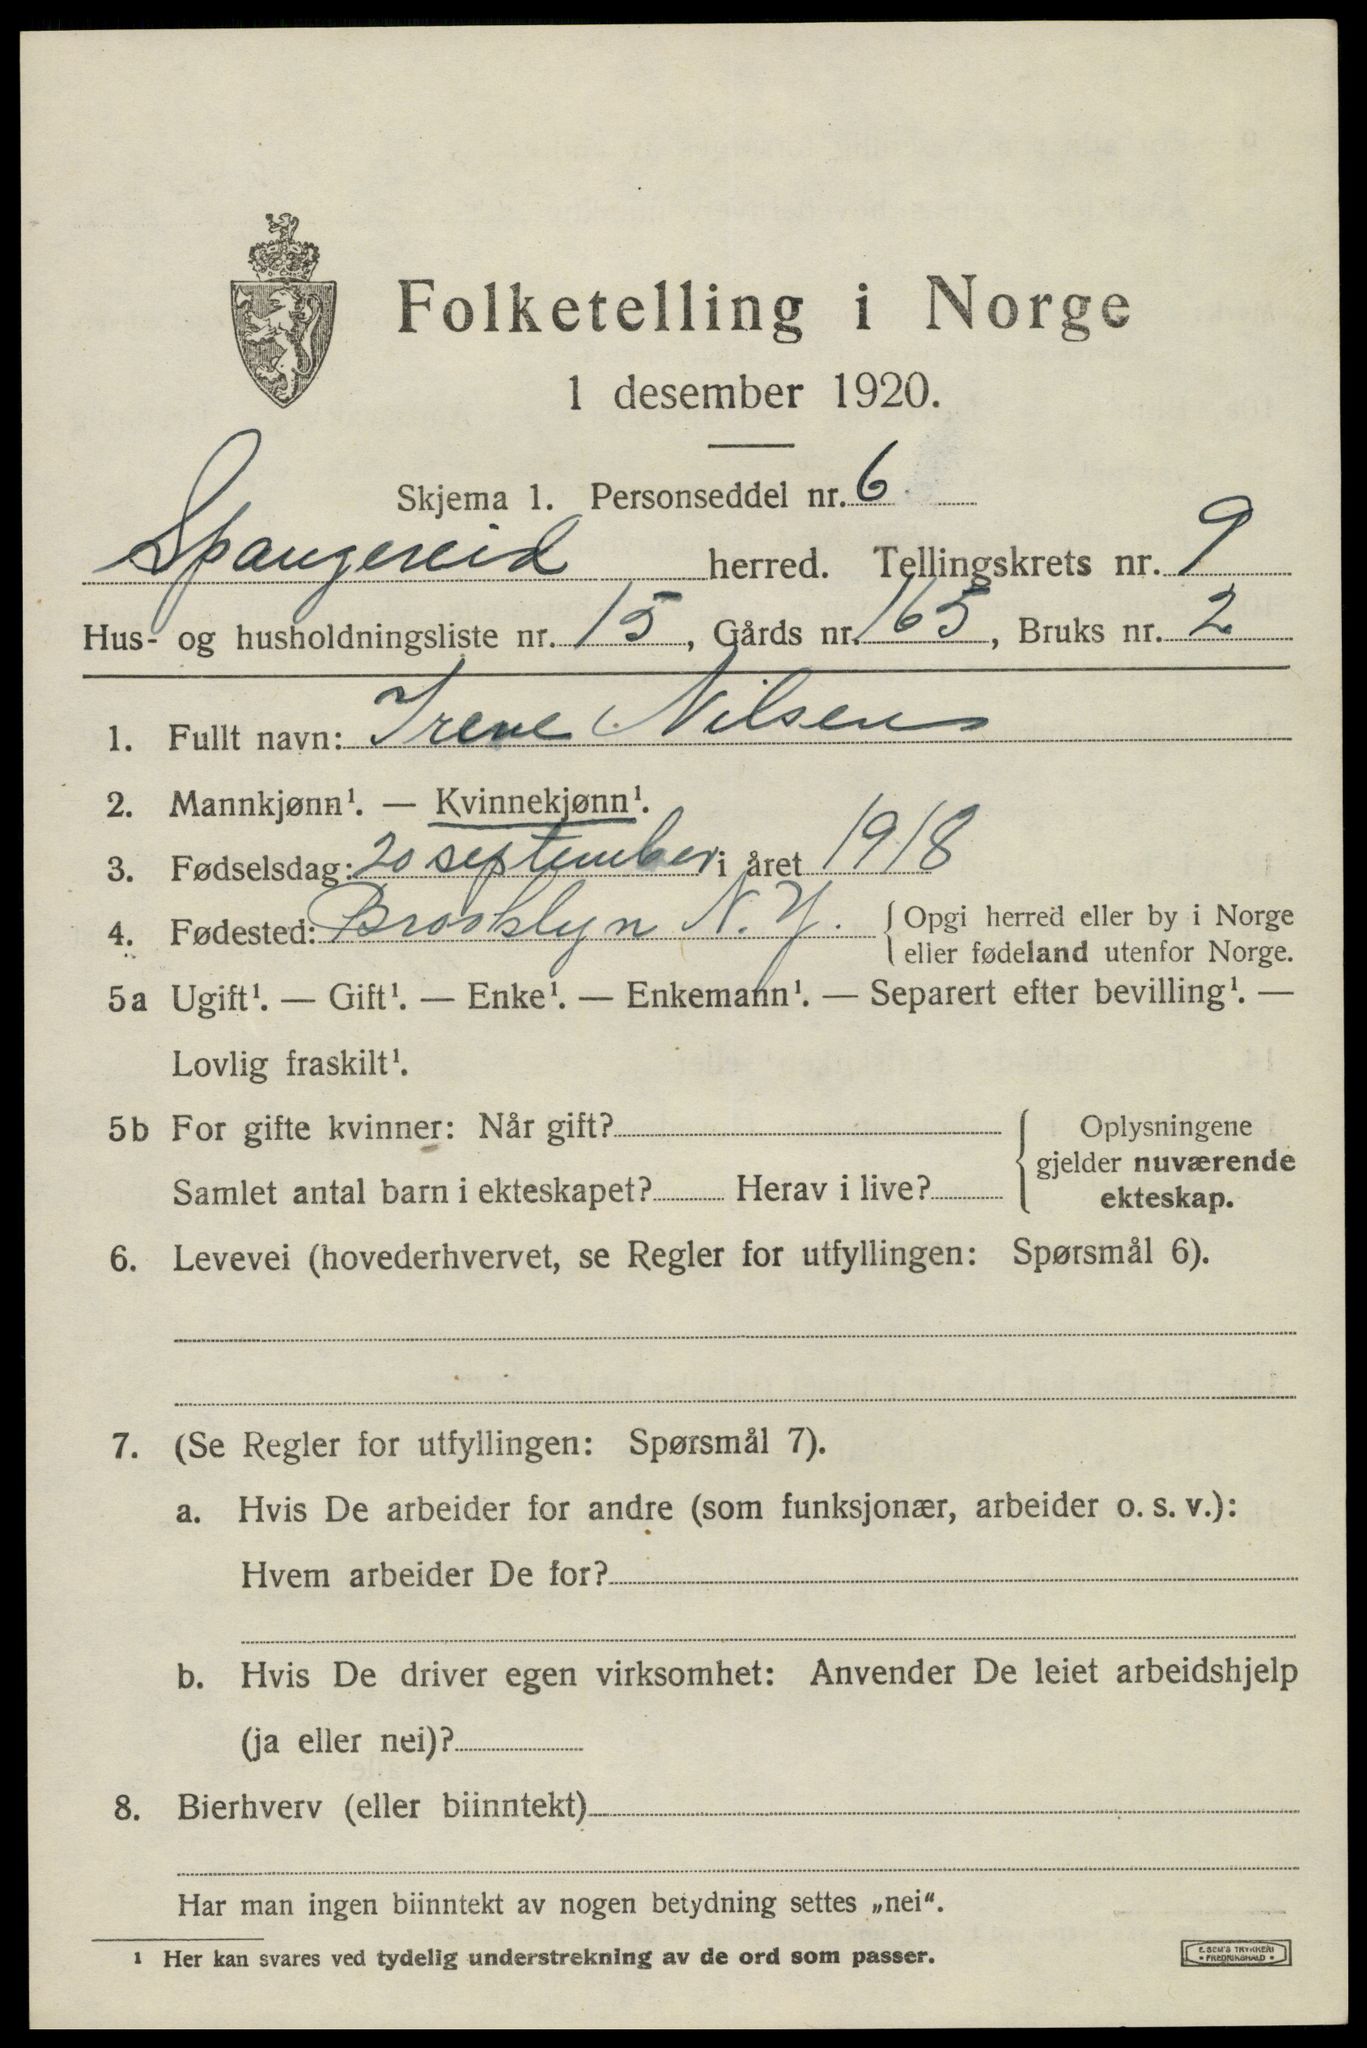 Folketelling i Norge
1 desember 1920.
Skjema 1. Personseddel nr. 6
Spangereid herred. Tellingskrets nr. 9
Hus- og husholdningsliste nr. 15, Gårds nr. 165, Bruks nr. 2
1. Fullt navn: Irene Nilsen
2. Mannkjønn¹. — Kvinnekjønn¹.
3. Fødselsdag: 20 september i året 1918
4. Fødested: Brooklyn N.Y. { Opgi herred eller by i Norge
eller fødeland utenfor Norge.
5a Ugift¹. — Gift¹. — Enke¹. — Enkemann¹. — Separert efter bevilling¹. —
Lovlig fraskilt¹.
5b For gifte kvinner: Når gift?
Samlet antal barn i ekteskapet? Herav i live?
{ Oplysningene
gjelder nuværende
ekteskap.
6. Levevei (hovederhvervet, se Regler for utfyllingen: Spørsmål 6).
7. (Se Regler for utfyllingen: Spørsmål 7).
a. Hvis De arbeider for andre (som funksjonær, arbeider o. s. v.):
Hvem arbeider De for?
b. Hvis De driver egen virksomhet: Anvender De leiet arbeidshjelp
(ja eller nei)?
8. Bierhverv (eller biinntekt)
Har man ingen biinntekt av nogen betydning settes „nei“.
¹ Her kan svares ved tydelig understrekning av de ord som passer.
E. SEM'S TRYKKERI
• FREDRIKSHALD •